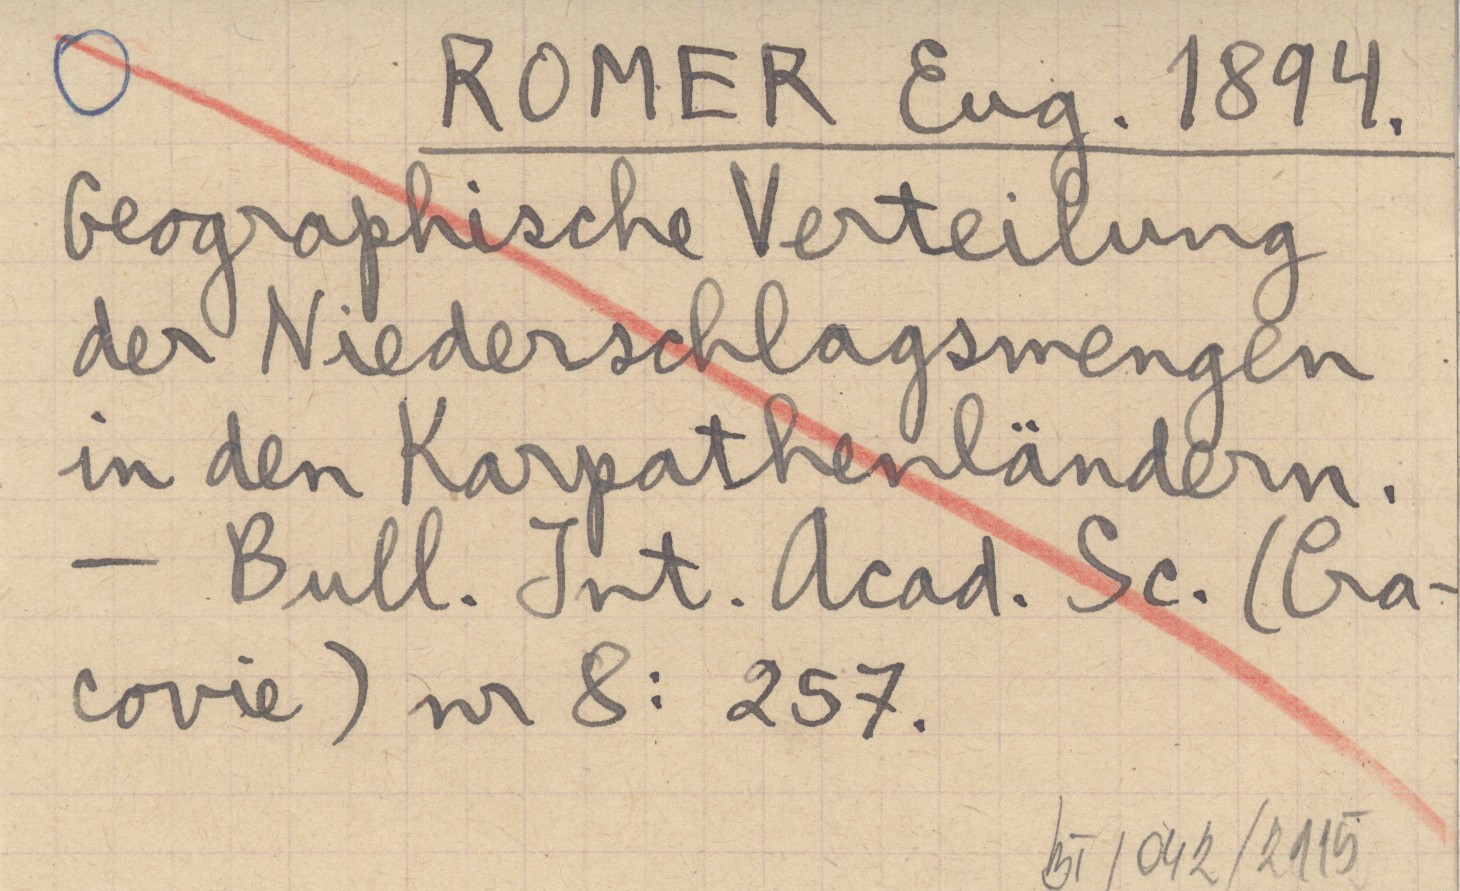 ROMER Eug. 1894.
Geographische Verteilung
der Niederschlagsmengen
in den Karpathenländern.
— Bull. Int. Acad. Sc. (Cra-
covie) nr 8: 257.
/042/2115